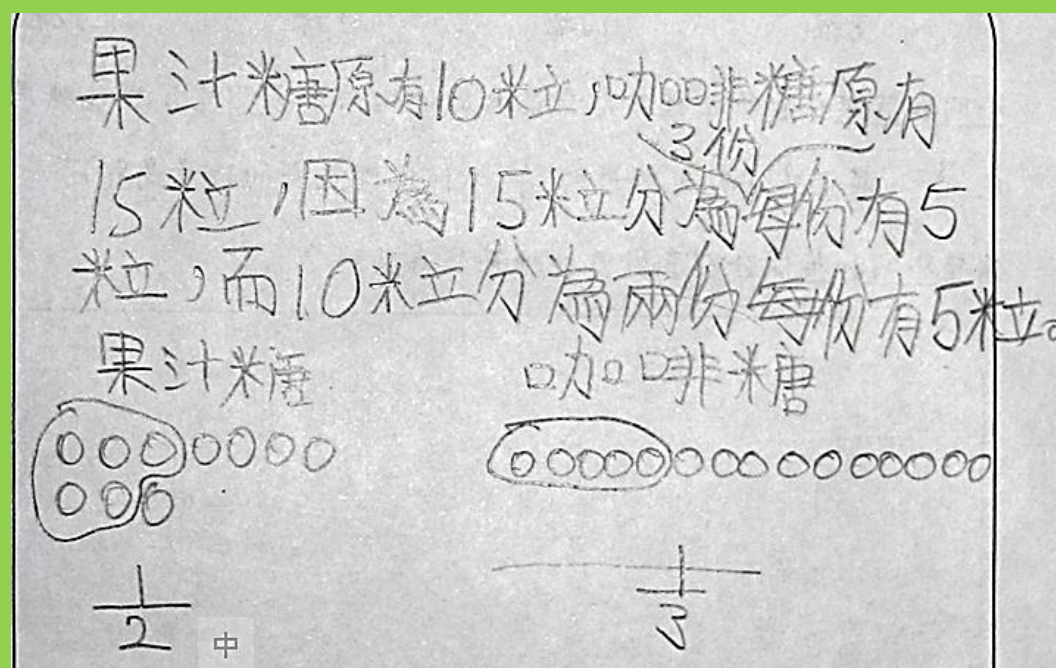 果汁糖原有10粒,咖啡糖原有
3份
15粒,因為15粒分為每份有5
粒,而10粒分為兩份每份有5粒。
果汁糖
咖啡糖
1
2
1
3
中